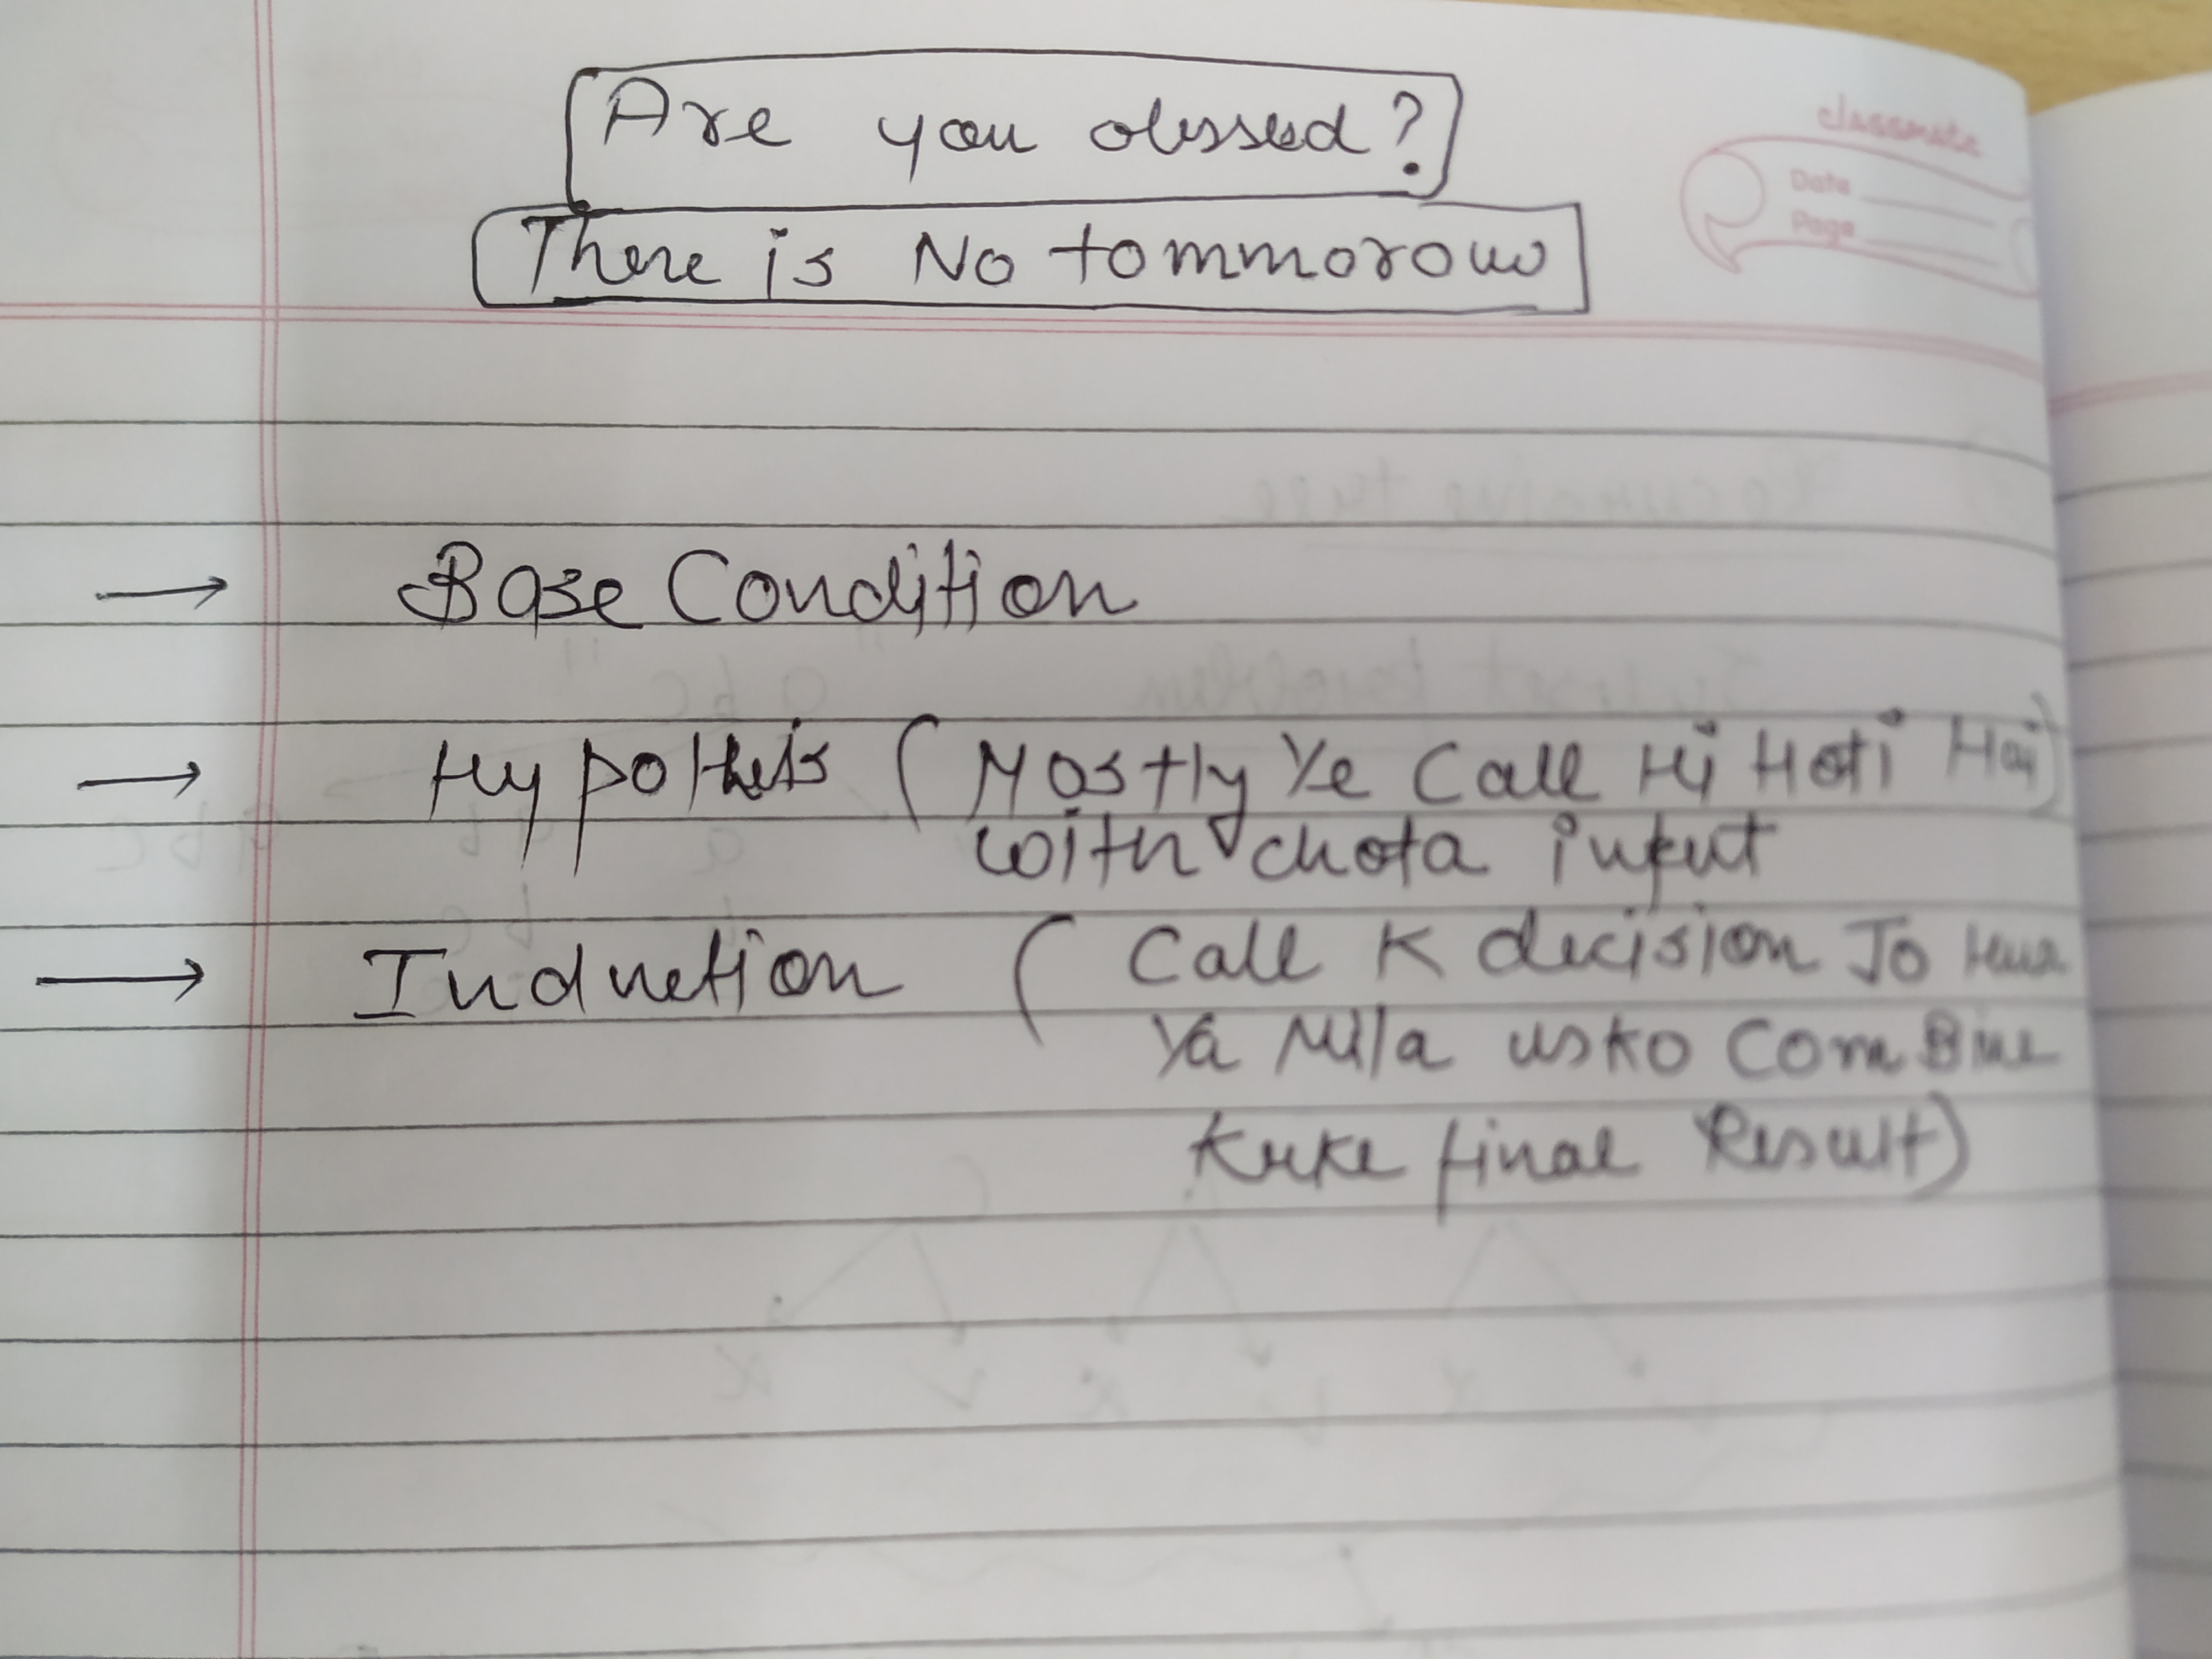 Are you obssed?
There is No tommorow
classmate
Date
Page
→ Base Condition
→ Hypothesis (Mostly Ye Call Hi Hoti Hai)
with chota input
→ Induction ( Call K decision Jo Hua
Ya Mila usko ComBine
Krke final Result)